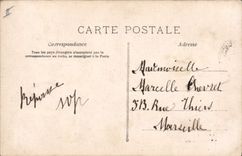 CARTE POSTALE
Correspondance
Adresse
Tous les pays étrangers n'acceptent pas la
correspondance au recto, se renseigner à la Poste
Mademoiselle
Marcelle
Réponse
svp
Rue Thiers
Marseille